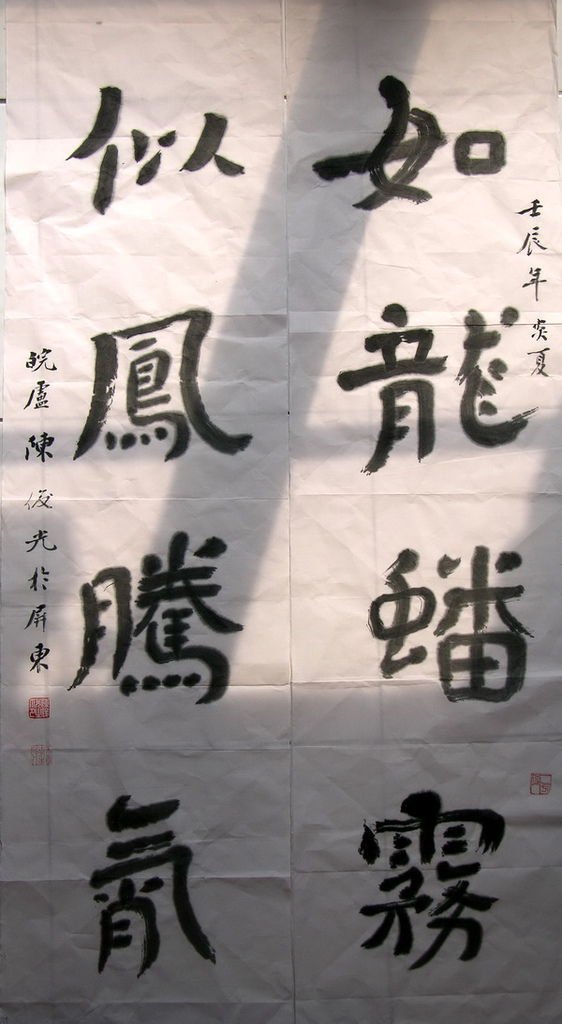 壬辰年炎夏
如龍蟠霧
似鳳騰
皖盧陳俊光於屏東